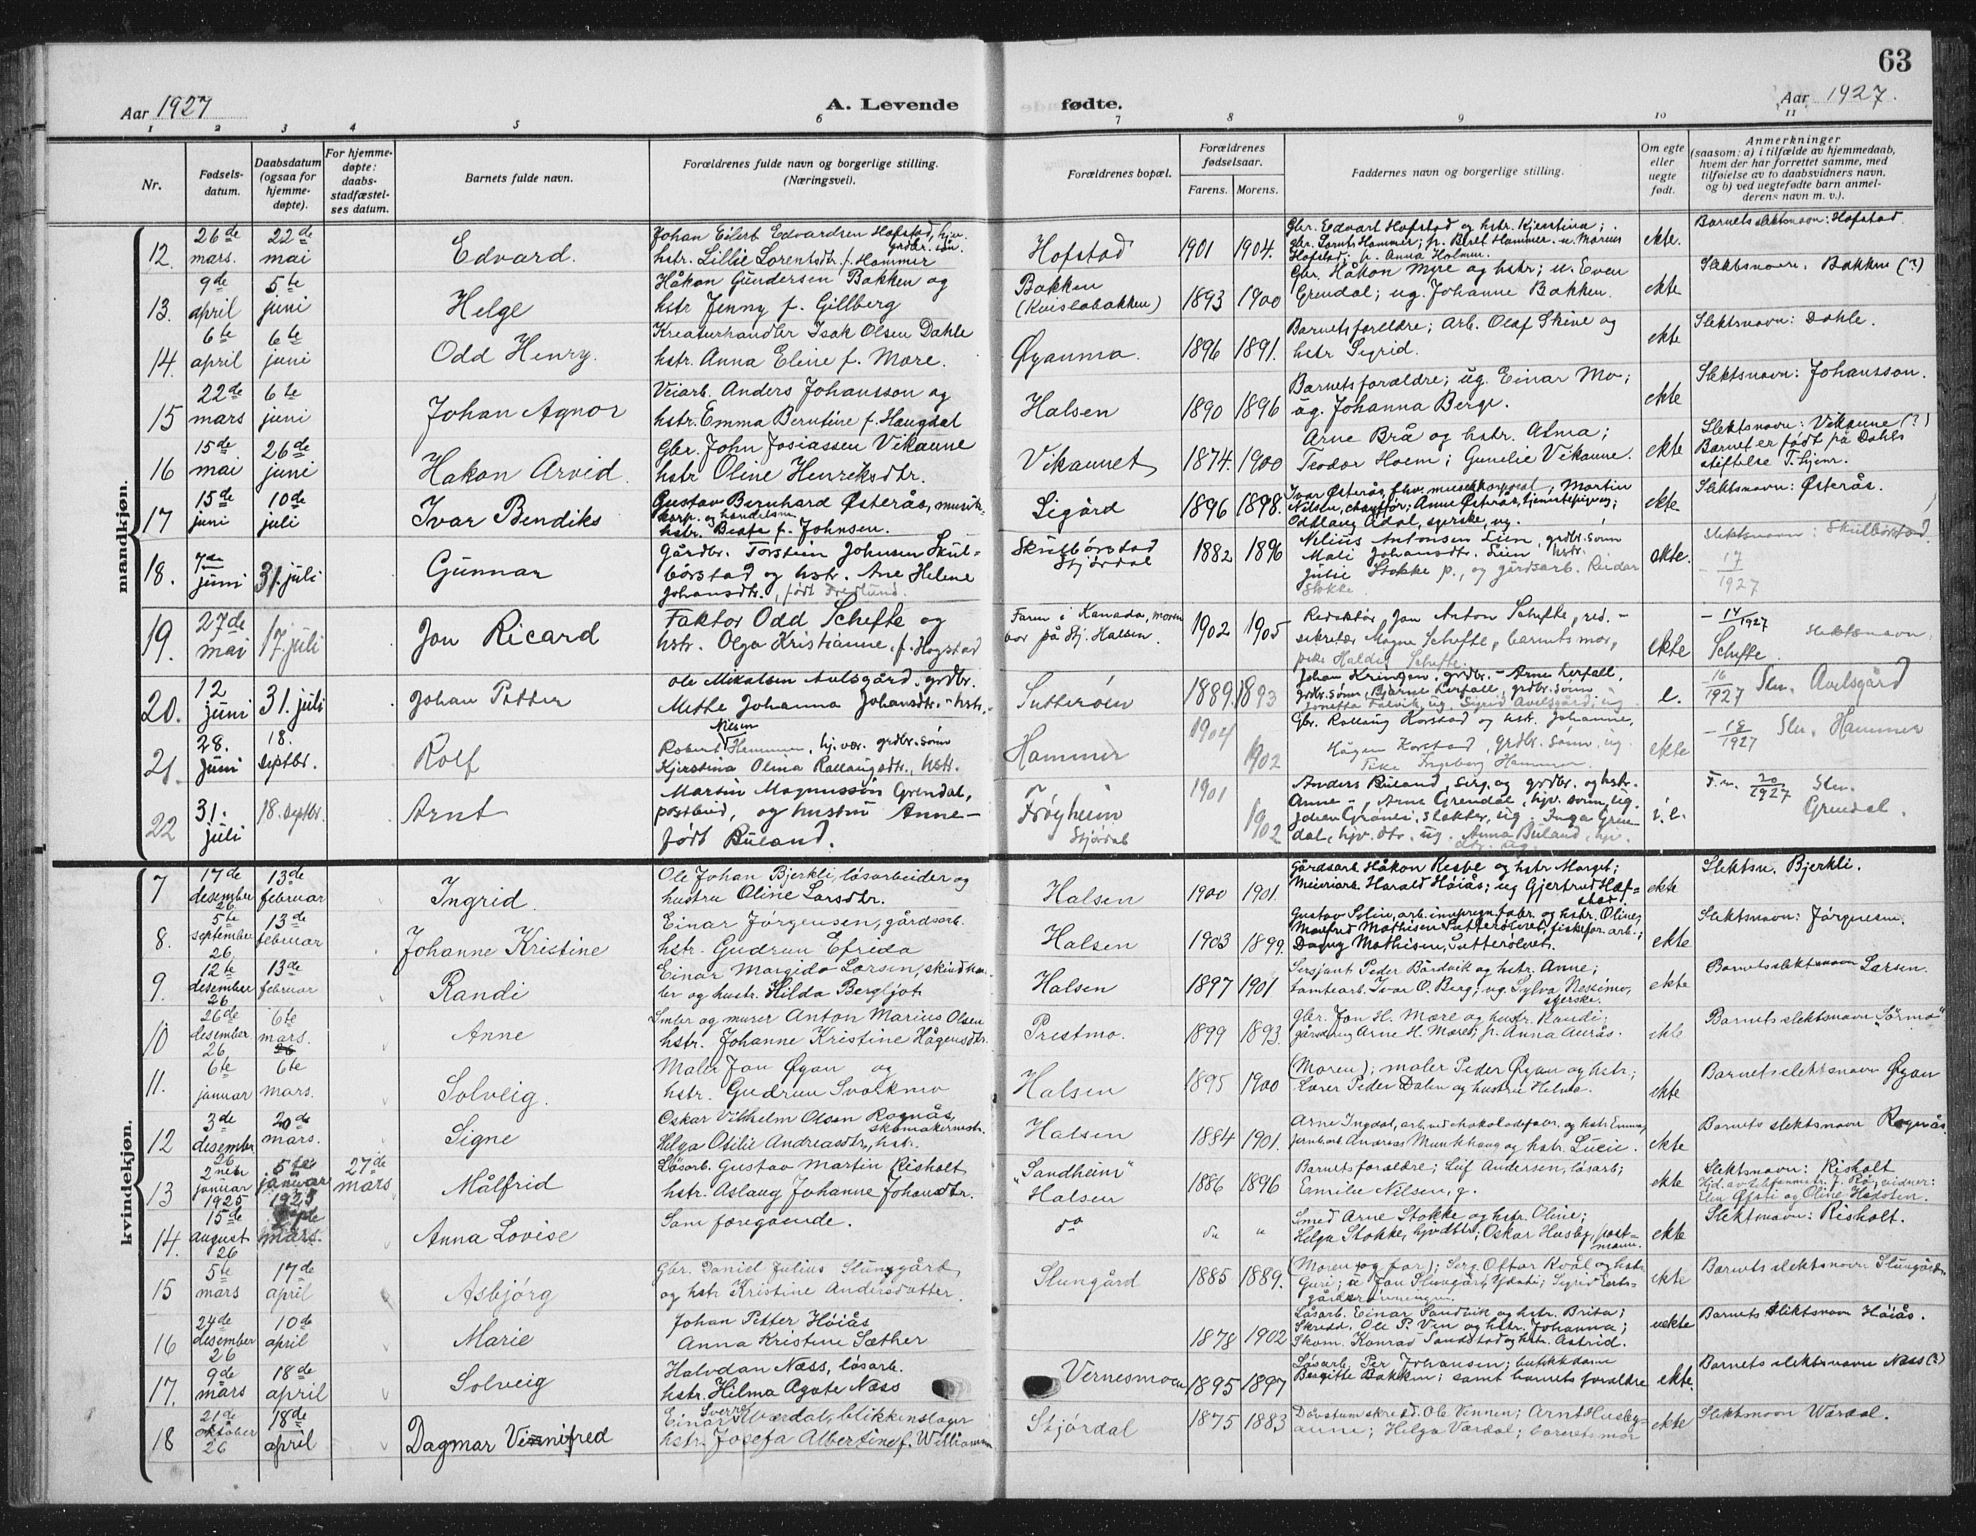 63
Aar 1927
A. Levende fødte.
Aar 1927.
1 2 3 4 5 6 7 8 9 10 11
Nr.
Fødsels-
datum.
Daabsdatum
(ogsaa for
hjemme-
døpte).
For hjemme-
døpte:
daabs-
stadfæstel-
ses datum.
Barnets fulde navn.
Forældrenes fulde navn og borgerlige stilling.
(Næringsvei).
Forældrenes bopæl.
Forældrenes
fødselsaar.
Farens. Morens.
Faddernes navn og borgerlige stilling.
Om egte
eller
uegte
født.
Anmerkninger
(saasom: a) i tilfælde av hjemmedaab,
hvem der har forrettet samme, med
tilføielse av to daabsvidners navn,
og b) ved uegtefødte barn anmel-
derens navn m. v.).
mandkjøn.
12. 26de mars. 22de mai Edvard.
Johan Eilert Edvardsen Hofstad, hjv. grdbr. søn.
hstr. Lillie Lorentsdtr. f. Hammer
Hofstad 1901 1904.
Gbr. Edvart Hofstad og hstr. Kjerstina;
gbr. Lornts Hammer; p. Beret Hammer. u. Marius
Hofstad; p. Anna Holmen.
ekte. Barnets slektsnavn: Hofstad
13. 9de april 5te juni Helge
Håkon Gundersen Bakken og
hstr Jenny f. Gillberg
Bakken
(Kvislabakken) 1893 1900
Gbr. Håkon Myre og hstr; u. Even
Grendal; ug. Johanne Bakken.
ekte Slektsnavn. Bakken (?)
14. 6te april 6te juni Odd Henry.
Kreaturhandler Isak Olsen Dahle
hstr. Anna Eline f. Mære.
Øyanmo. 1896 1891.
Barnets foreldre; Arb. Olaf Skine og
hstr Sigrid.
ekte Slektsnavn: Dahle.
15 22de mars 6te juni Johan Agnor
Veiarb. Anders Johansson og
hstr. Emma Berntine f. Haugdal
Halsen 1890 1896
Barnets forældre; ug. Einar Mo;
ug. Johanna Berge.
ekte Slektsnavn: Johansson.
16 15de mai 26de juni Hakon Arvid.
Gbr. John Josiassen Vikaune
hstr Oline Henriksdtr.
Vikaunet 1874. 1900
Arne Brå og hstr. Alma;
Teodor Hoem; Gunelie Vikaune.
ekte Slektsnavn: Vikaune (?)
Barnet er født på Dahls
stiftelse T.hjem.
17 15de juni 10de juli Ivar Bendiks
Gustav Bernhard Østerås, musik-
korp. og handelsm.
hstr. Beate f. Johnsen.
Ligård 1896 1898.
Ivar Østerås, fhv. musikkorporal, Martin
Nilsen, chauffør; Anne Østerås, tjenestepige ug;
Oddlaug Ådal, syerske, ug.
ekte Slektsnavn: Østerås.
18. 7de juni 31. juli Gunnar
Gårdbr. Torstein Johnsen Skul-
børstad og hstr. Ane Helene
Johansdtr., født Fredlund.
Skulbørstad
Stjørdal 1882 1896
Nilius Antonsen Lien, grdbr. sønn
Mali Johansdtr. Lien hstr.
Julie Stokke p., og gårdsarb. Reidar
Stokke
ekte. Slektsnavn: Skulbørstad
17/1927
19. 27de mai 17. juli Jon Ricard
Faktor Odd Schefte og
hstr. Olga Kristianne, f. Hogstad
Faren i Kanada, moren
bor på Stj. Halsen. 1902 1905
Redaktør Jon Anton Schefte, red. -
sekretær Magne Schefte, barnets mor,
pike Haldis Schefte.
ekte 14/1927 slektsnavn
Schefte
20. 12 juni 31. juli Johan Petter
Ole Mikalsen Aulsgård, grdbr.
Mette Johanna Johansdtr. - hstr.
Sutterøen 1889. 1893
Johan Kringen, grdbr. - Arne Lerfall,
grdbr. sønn, Bjarne Lerfall, grdbr. sønn
e. 16/1927 Sln. Avelsgård
21. 28. juni 18. septbr. Rolf
Robert Nilsen Hammer, hj. vær. grdbr. sønn
Kjerstina Olina Rallaugsdtr., hstr.
Hammer 1904 1902
Gbr. Rollaug Korstad og hstr. Johanne,
Hågen Korstad, grdbr. sønn, ug.
Pike Ingeborg Hammer.
ekte 18/1927 Sln. Hammer
22 31. juli 18. septbr. Arnt
Martin Magnussøn Grendal,
postbud, og hustru Anne -
født Buland.
Trøyheim
Stjørdal 1901 1902
Anders Buland, Serg. og grdbr. og hstr.
Anne -, Arne Grendal, hjv. sønn, ug.
20/1927 Sln.
Grendal.
kvindekjøn.
7 17de desember 26 13de februar Ingrid.
Ole Johan Bjerkli, løsarbeider og
hustru Oline Larsdtr.
Halsen 1900 1901.
Gårdsarb Håkon Resve og hstr Marget;
Meieriarb. Harald Høiås; ug Gjertrud Hof-
stad.
ekte Slektsn. Bjerkli.
8. 5te september 26 13de februar Johanne Kristine
Einar Jørgensen, gårdsarb.
hstr. Gudrun Efrida
Halsen 1903 1899.
ekte Slektsnavn: Jørgensen.
9. 12te desember 26 13de februar Randi
Einar Margido Larsen, skindhan-
ler og hustr. Hilda Bergljot
Halsen 1897 1901
Sersjant Peder Bårdvik og hstr. Anne;
tomtearb. Ivar O. Berg; ug. Sylva Nessimo,
syerske.
ekte Barnets slektsnavn Larsen.
10 26de desember 26 6te mars. Anne
Smber og murer Anton Marius Olsen
hstr. Johanne Kristine Hågensdtr.
Prestmo. 1899 1893.
Gbr. Jon H. Mære og hustr. Randi;
gårdbrug Arne H. Mæret; p. Anna Aurås.
ekte Barnets slektsnavn "Sørmo"
11. 6te januar 6te mars. Solveig.
Maler Jon Øyan og
hstr. Gudrun Svolkmo
Halsen 1895 1900
(Moren); maler Peder Øyan og hstr;
Lærer Peder Dalen og hustru Helma.
ekte Barnets slektsnavn Øyan
12 3de desember 26 20de mars. Signe
Oskar Vilhelm Olsen Rognås, skomakermestr.
Helga Otilie Andreasdtr., hstr.
Halsen 1884 1901.
Arne Ingdal, arb. ved chokoladefabr. og hstr. Emma,
jernbarb. Andreas Munkhaug og hstr. Lucie.
ekte Barnets slektsnavn Rognås
13 2net januar 1925 5te januar 1925 27de mars Målfrid
Løsarb. Gustav Martin Risholt
hstr. Aslaug Johanne Johansdtr.
"Sandheim"
Halsen 1886 1896
Barnets forældre; Leif Andersen, løsarb;
Emilie Nilsen, g.
ekte Slektsnavn: Risholt
14. 15de august 26 mars. Anna Lovise
Som foregående.
do do "
Smed Arne Stokke og hstr. Oline;
Helga Stokke, hjv. dtr; Oskar Husby, post-
mann.
ekte Slektsnavn: Risholt.
15 5te mars 17de april Asbjørg
Gbr. Daniel Julius Slungård,
og hstr Kristine Andersdatter.
Slungård 1885 1889.
ekte Barnets slektsnavn Slungård
16 24de desember 26 10de april Marie
Johan Petter Høiås
Anna Kristine Sæther
1878 1902
Løsarb. Einar Sandvik og hstr. Brita;
Skredd. Ole P. Vin og hstr. Johanna;
Skom. Konrad Sandstad og hstr. Astrid.
uekte Barnets slektsnavn Høiås.
17. 9de mars 18de april Solveig
Halvdan Næss, løsarb.
hstr. Hilma Agate Næss
Vernesmoen 1895 1897
Løsarb. Per Johansen; butikkdame
Bergitte Bakken; samt barnets forældre
ekte. Barnets slektsnavn Næss (?)
18 21de oktober 26 18de april Dagmar Vinnifred
Einar Sverre Værdal, blikkenslager
hstr. Josefa Albertine f. Williamsen
Stjørdal 1875 1883
Døvstumskred. Ole Vinnen; Arnt Husby-
aune; Helga Værdal; barnets mor
ekte Slektsnavn Værdal.